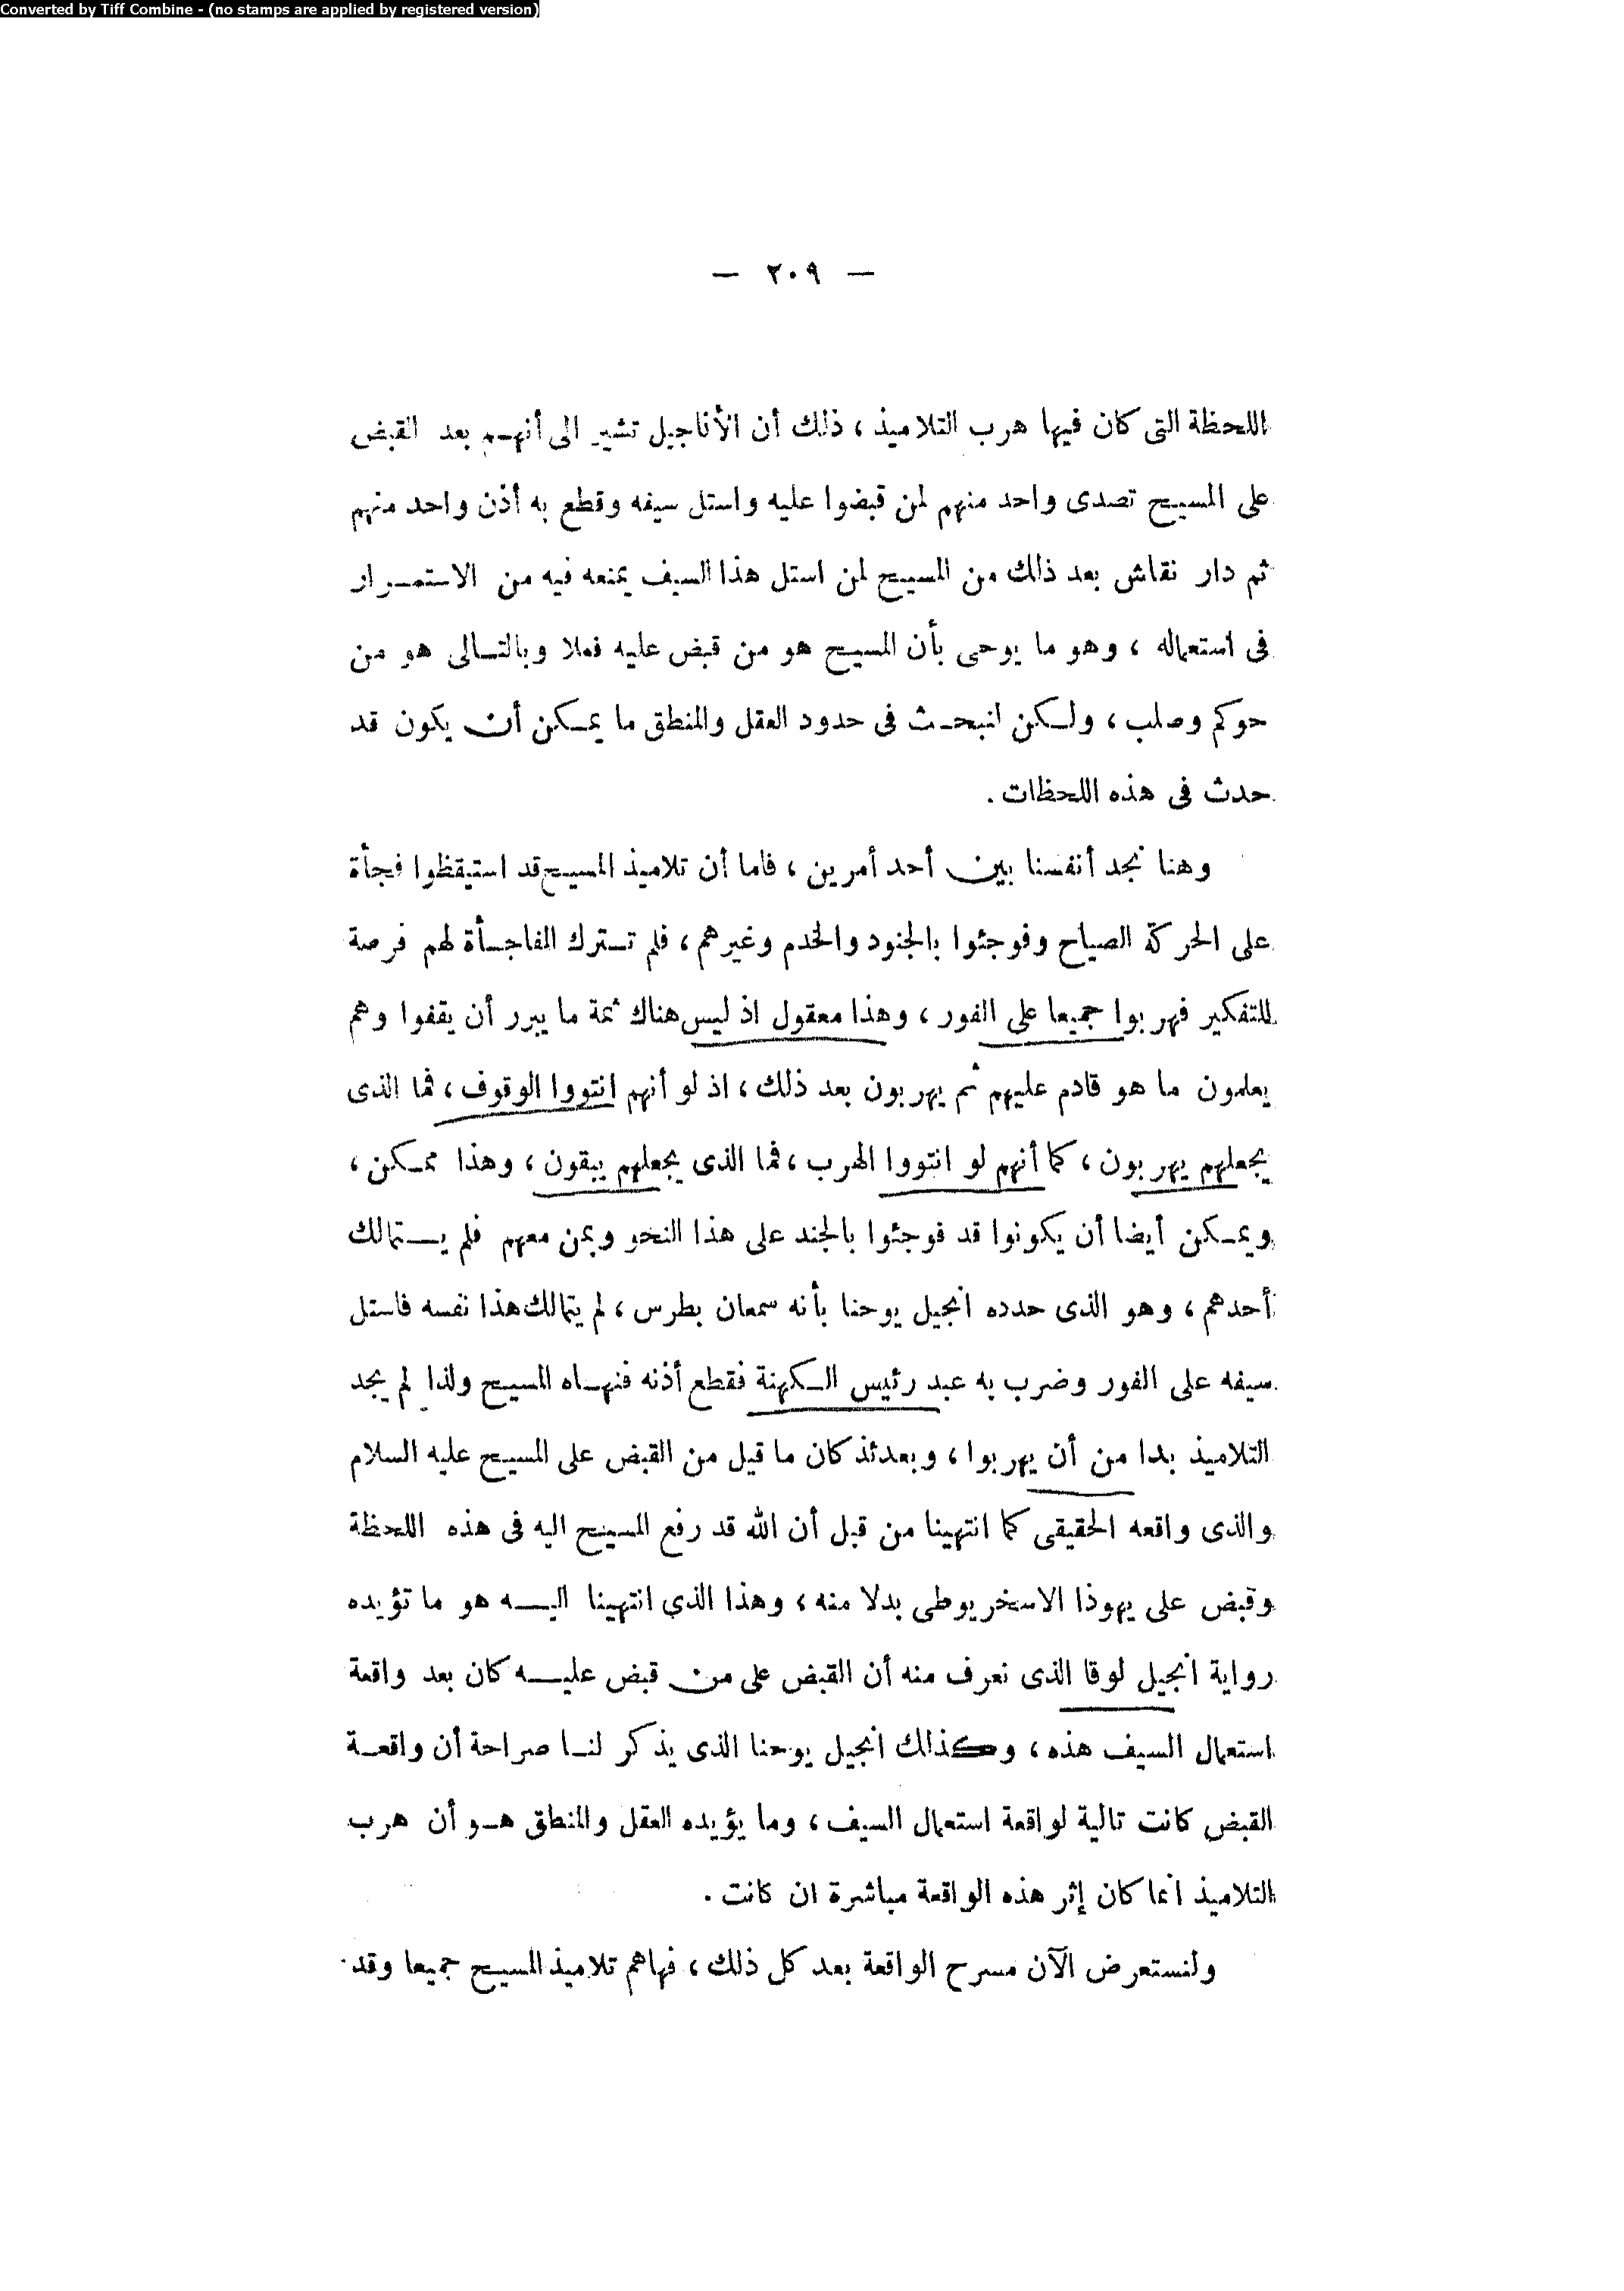 Converted by Tiff Combine - (no stamps are applied by registered version)
— ٢٠٩ —
اللحظة التى كان فيها هرب التلاميذ ، ذلك أن الأناجيل تشير الى أنهم بعد القبض
على المسيح تصدى واحد منهم لمن قبضوا عليه واستل سيفه وقطع به أذن واحد منهم
ثم دار نقاش بعد ذلك من المسيح لمن استل هذا السيف يمنعه فيه من الاستمرار
فى استعماله ، وهو ما يوحى بأن المسيح هو من قبض عليه فعلا وبالتالى هو من
حوكم وصلب ، ولكن لنبحث فى حدود العقل والمنطق ما يمكن أن يكون قد
حدث فى هذه اللحظات .
وهنا نجد أنفسنا بين أحد أمرين ، فاما أن تلاميذ المسيح قد استيقظوا فجأة
على الحركة الصياح وفوجئوا بالجنود والخدم وغيرهم ، فلم تترك المفاجأة لهم فرصة
للتفكير فهربوا جميعا على الفور ، وهذا معقول اذ ليس هناك ثمة ما يبرر أن يقفوا وهم
يعلمون ما هو قادم عليهم ثم يهربون بعد ذلك ، اذ لو أنهم انتووا الوقوف ، فما الذى
يجعلهم يهربون ، كما أنهم لو انتووا الهرب ، فما الذى يجعلهم يبقون ، وهذا ممكن ،
ويمكن أيضا أن يكونوا قد فوجئوا بالجند على هذا النحو وبمن معهم فلم يتمالك
أحدهم ، وهو الذى حدده انجيل يوحنا بأنه سمعان بطرس ، لم يتمالك هذا نفسه فاستل
سيفه على الفور وضرب به عبد رئيس الكهنة فقطع أذنه فنهاه المسيح ولذا لم يجد
التلاميذ بدا من أن يهربوا ، وبعدئذ كان ما قيل من القبض على المسيح عليه السلام
والذى واقعه الحقيقى كما انتهينا من قبل أن الله قد رفع المسيح اليه فى هذه اللحظة
وقبض على يهوذا الاسخريوطى بدلا منه ، وهذا الذى انتهينا اليه هو ما تؤيده
رواية انجيل لوقا الذى نعرف منه أن القبض على من قبض عليه كان بعد واقعة
استعمال السيف هذه ، وكذلك انجيل يوحنا الذى يذكر لنا صراحة أن واقعة
القبض كانت تالية لواقعة استعمال السيف ، وما يؤيده العقل والمنطق هو أن هرب
التلاميذ انما كان إثر هذه الواقعة مباشرة ان كانت .
ولنستعرض الآن مسرح الواقعة بعد كل ذلك ، فهاهم تلاميذ المسيح جميعا وقد